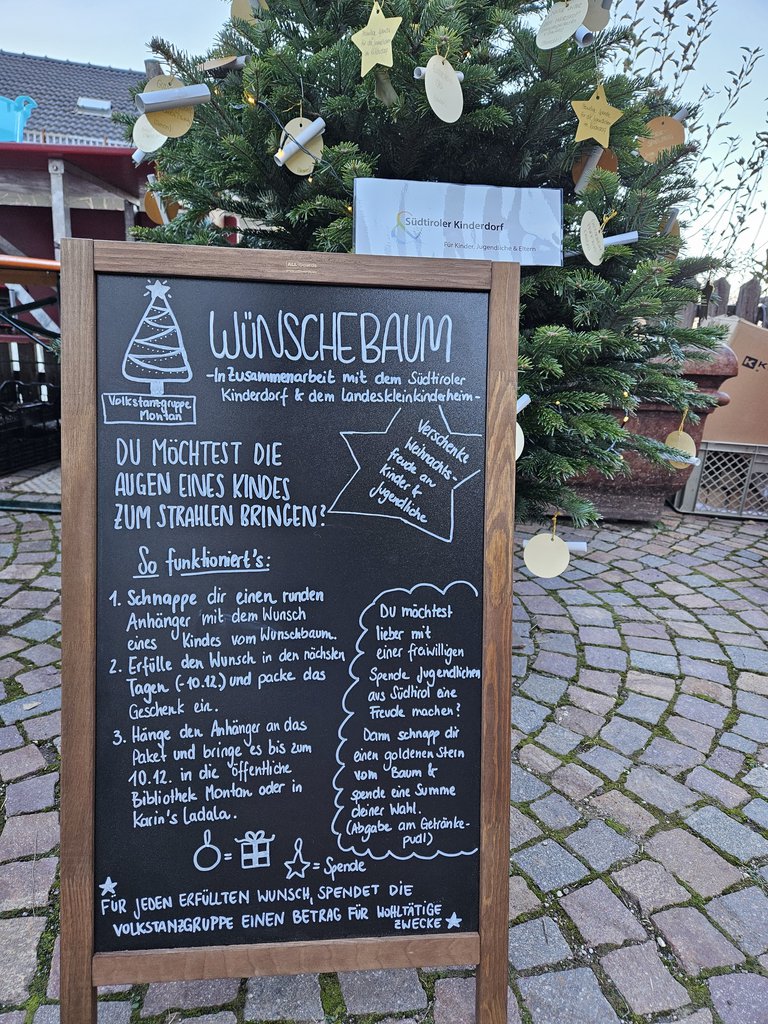 Südtiroler Kinderdorf
Für Kinder, Jugendliche & Eltern
WÜNSCHEBAUM
-In Zusammenarbeit mit dem Südtiroler
Kinderdorf & dem Landeskleinkinderheim-
Volkstanzgruppe
Montan
DU MÖCHTEST DIE
AUGEN EINES KINDES
ZUM STRAHLEN BRINGEN?
Verschenke
Weihnachts-
freude an
Kinder &
Jugendliche
So funktioniert's:
1. Schnappe dir einen runden
Anhänger mit dem Wunsch
eines Kindes vom Wünschbaum.
2. Erfülle den Wunsch in den nächsten
Tagen (-10.12.) und packe das
Geschenk ein.
3. Hänge den Anhänger an das
Paket und bringe es bis zum
10.12. in die öffentliche
Bibliothek Montan oder in
Karin's ladala.
Du möchtest
lieber mit
einer freiwilligen
Spende Jugendlichen
aus Südtirol eine
Freude machen?
Dann schnapp dir
einen goldenen Stern
vom Baum &
spende eine Summe
deiner Wahl.
(Abgabe am Getränke-
pudl)
= = Spende
FÜR JEDEN ERFÜLLTEN WUNSCH, SPENDET DIE
VOLKSTANZGRUPPE EINEN BETRAG FÜR WOHLTÄTIGE
ZWECKE